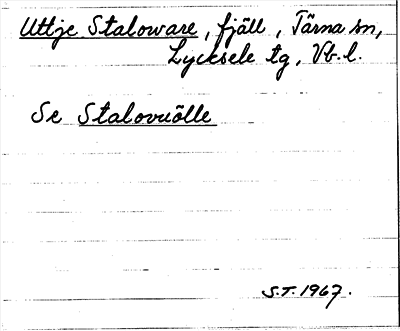 Uttje Staloware, fjäll, Tärna sn,
Lycksele tg, Vb.l.
Se Stalovuölle
S.T. 1967.